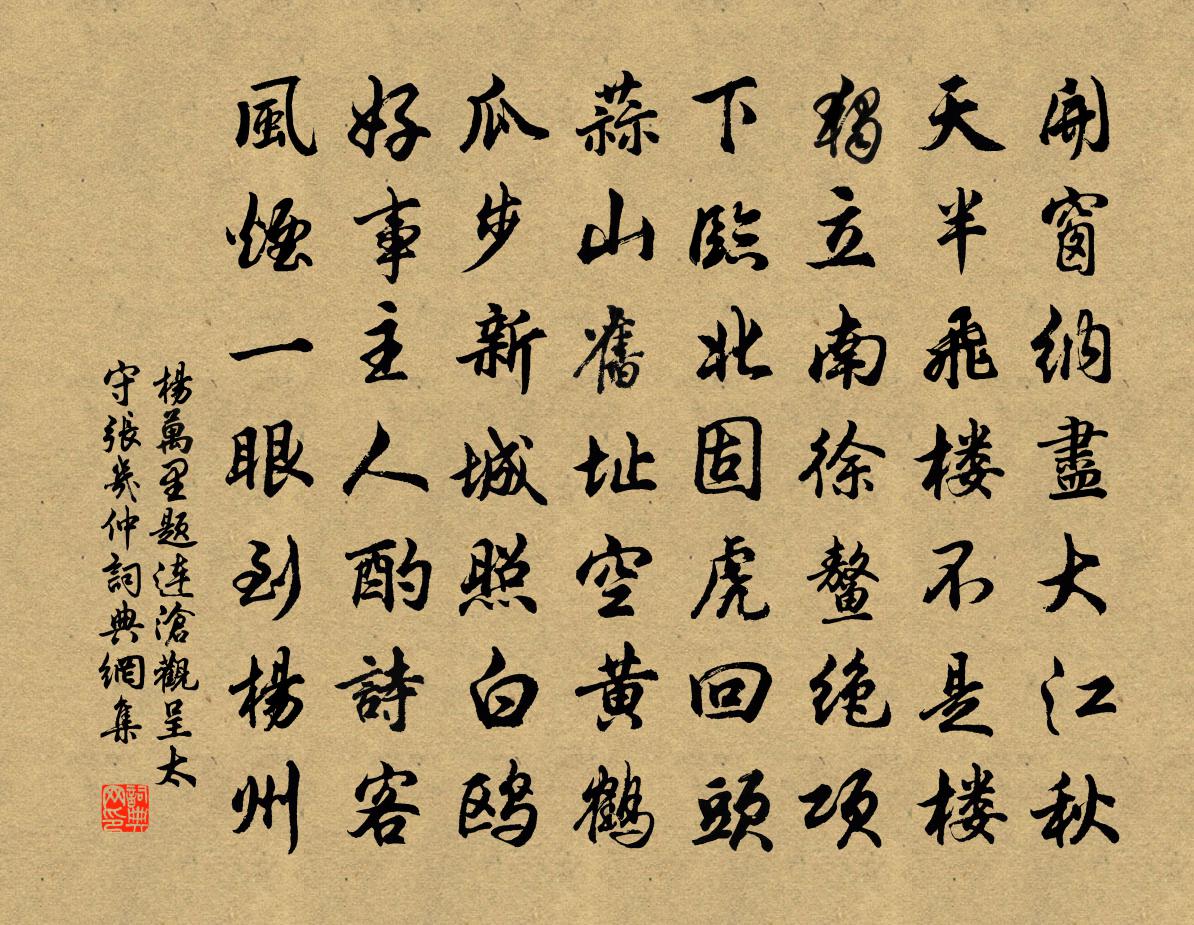 開窗納盡大江秋
天半飛楼不是楼
獨立南徐鼇绝頂
下臨北固虎回頭
蒜山舊址空黄鶴
瓜步新城照白鸥
好事主人酌詩客
風煙一眼到楊州
楊萬里题连滄觀呈太
守張幾仲詞典網集
詞典
网印